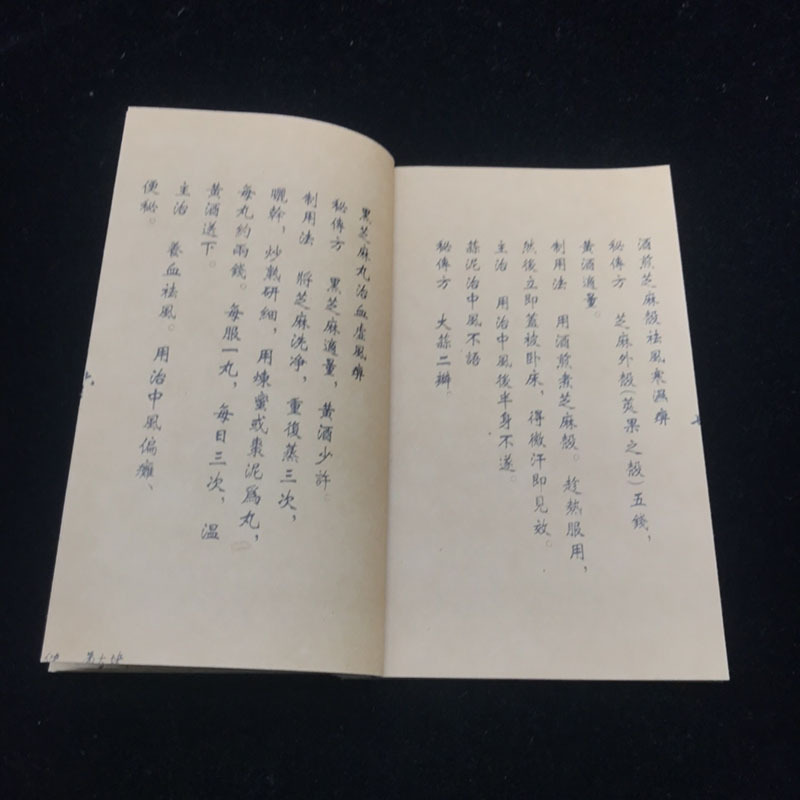 酒煎芝麻殼祛風寒濕痹
秘傳方 芝麻外殼(莢果之殼)五錢,
黃酒適量。
制用法 用酒煎煮芝麻殼。趁熱服用,
然後立即蓋被卧床,得微汗即見效。
主治 用治中風後半身不遂。
蒜泥治中風不語
秘傳方 大蒜二瓣。
黑芝麻丸治血虛風痹
秘傳方 黑芝麻適量,黃酒少許。
制用法 將芝麻洗净,重復蒸三次,
曬幹,炒熟研細,用煉蜜或棗泥爲丸,
每丸約兩錢。每服一丸,每日三次,溫
黃酒送下。
主治 養血祛風。用治中風偏癱、
便秘。